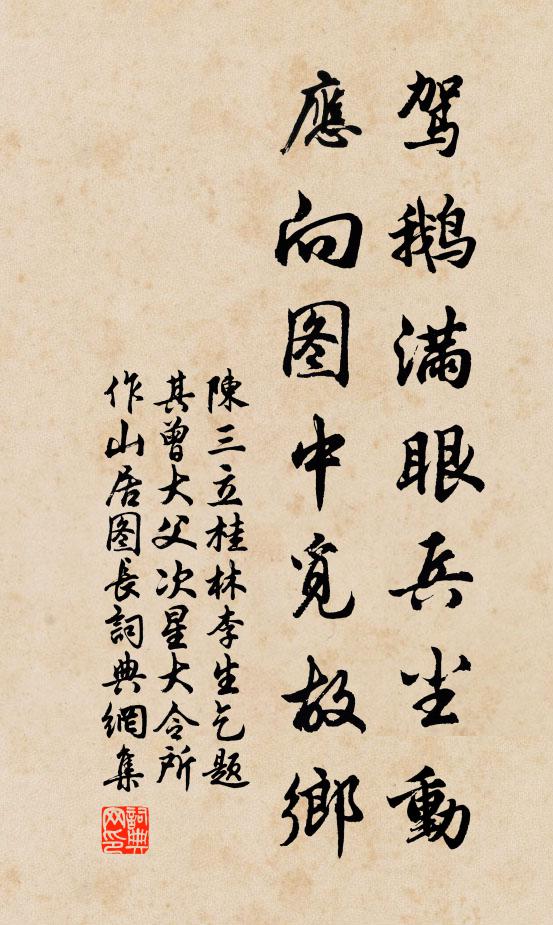 驾鹅滿眼兵尘動
應向图中覓故鄉
陳三立桂林李生乞题
其曾大父次星大令所
作山居图長詞典網集
詞典网印